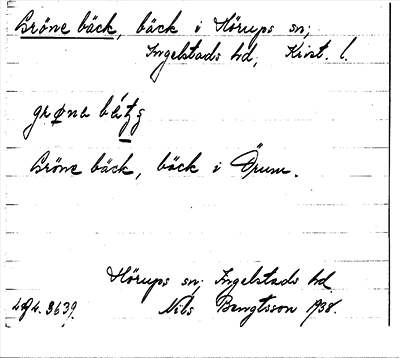 Gröne bäck, bäck i Hörups sn;
Ingelstads hd, Krist. l.
Gröne bäck, bäck i Örum.
Hörups sn; Ingelstads hd.
Nils Bengtsson 1938.